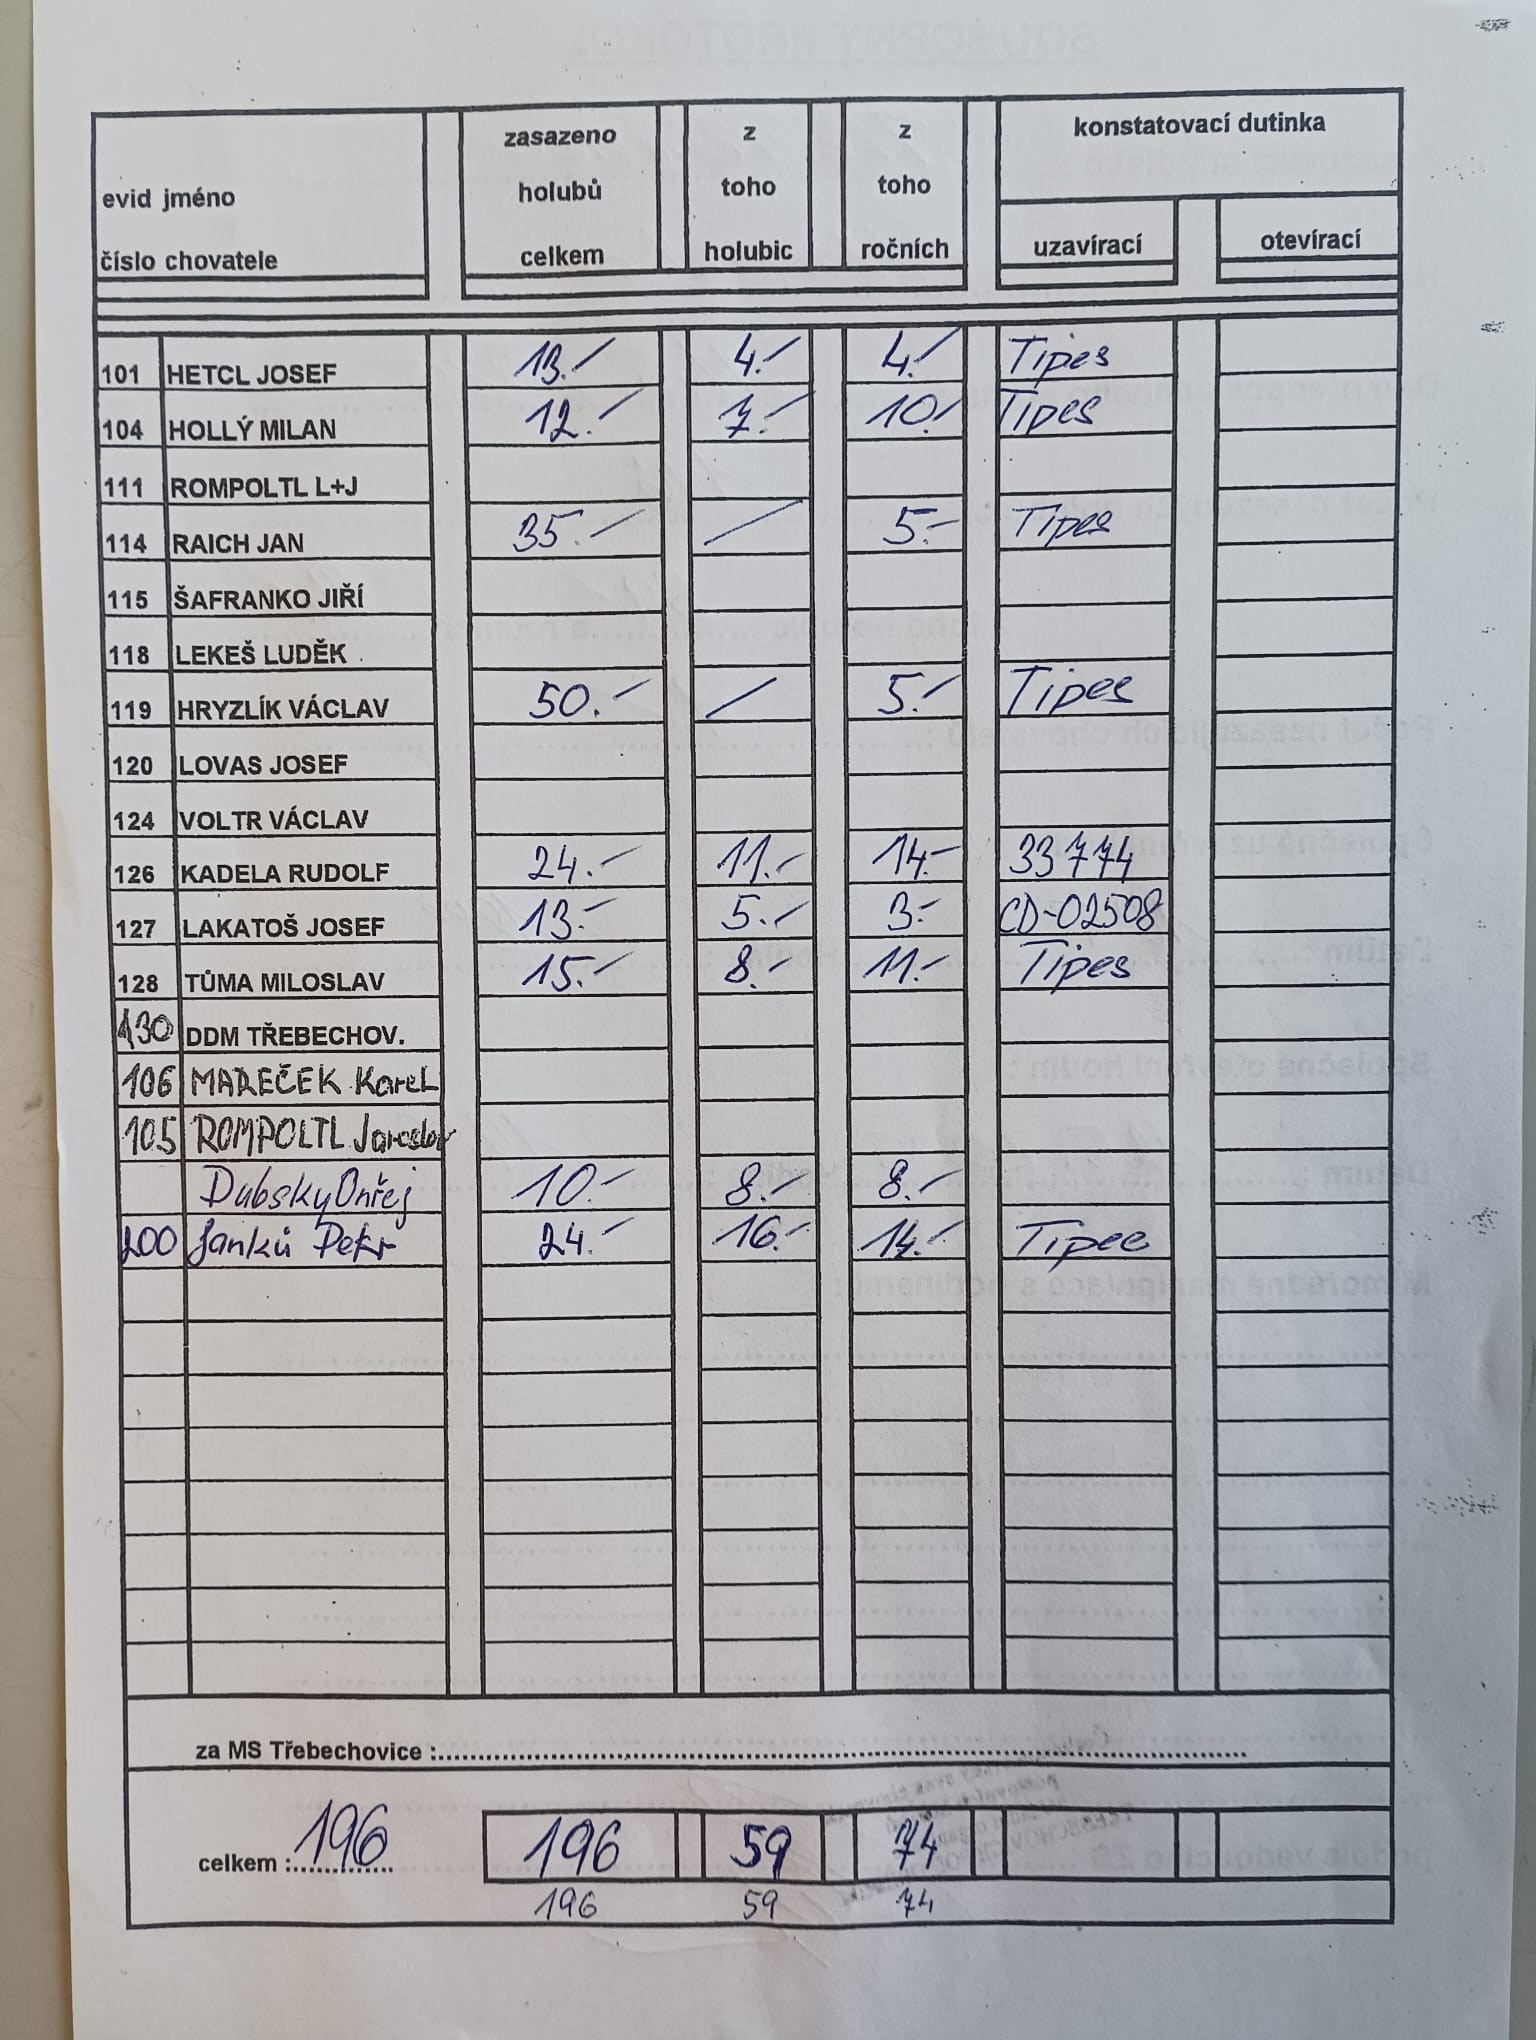 evid jméno
číslo chovatele
zasazeno
holubů
celkem
z
toho
holubic
z
toho
ročních
konstatovací dutinka
uzavírací
otevírací
101 HETCL JOSEF 13.- 4.- 4.- Tipes
104 HOLLÝ MILAN 12.- 7.- 10.- Tipes
111 ROMPOLTL L+J
114 RAICH JAN 35.- / 5.- Tipes
115 ŠAFRANKO JIŘÍ
118 LEKEŠ LUDĚK
119 HRYZLÍK VÁCLAV 50.- / 5.- Tipes
120 LOVAS JOSEF
124 VOLTR VÁCLAV
126 KADELA RUDOLF 24.- 11.- 14.- 33774
127 LAKATOŠ JOSEF 13.- 5.- 3.- CD-02508
128 TŮMA MILOSLAV 15.- 8.- 11.- Tipes
130 DDM TŘEBECHOV.
106 MAREČEK Karel
105 ROMPOLTL Jaroslav
Dubsky Ondřej 10.- 8.- 8.-
200 Janků Petr 24.- 16.- 14.- Tipec
za MS Třebechovice :
celkem : 196 196 59 74
196 59 74